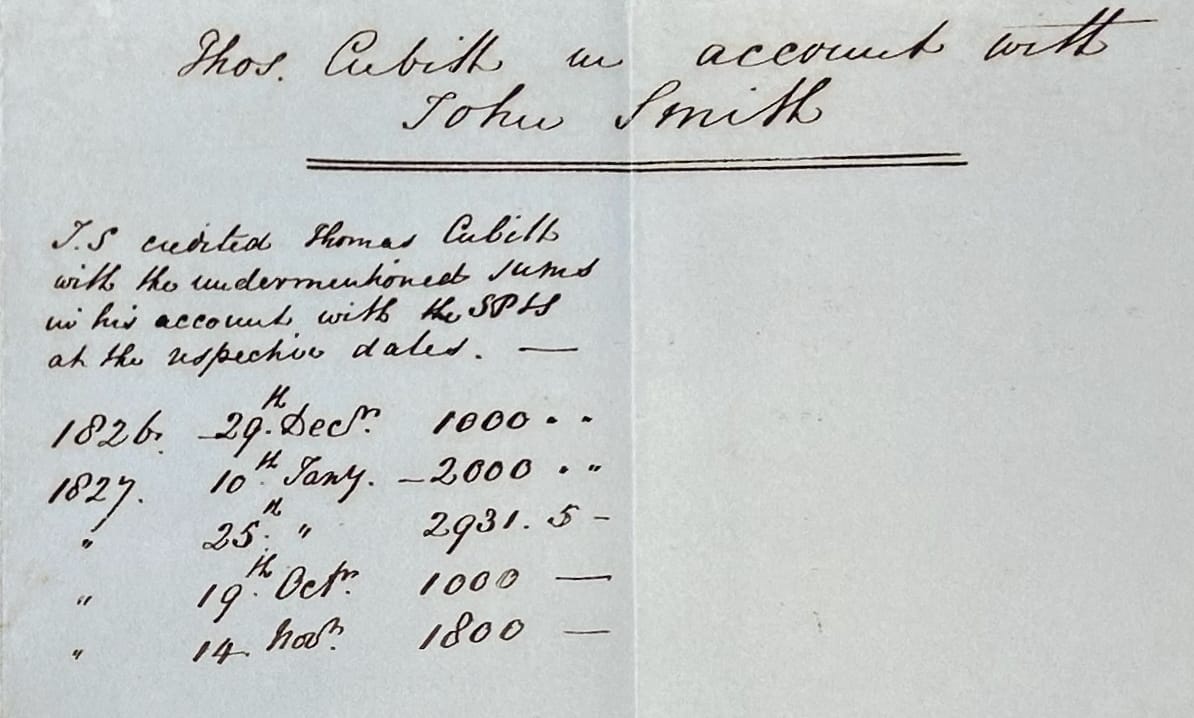 Thos. Cubitt in account with
John Smith
J.S credited Thomas Cubitt
with the undermentioned sums
in his account with the SP&S
at the respective dates. —
1826. 29.th Decr. 1000 " "
1827. 10.th Jany. – 2000 " "
" 25.th " 2931. 5 –
" 19.th Octr. 1000 —
" 14. Novr. 1800 —